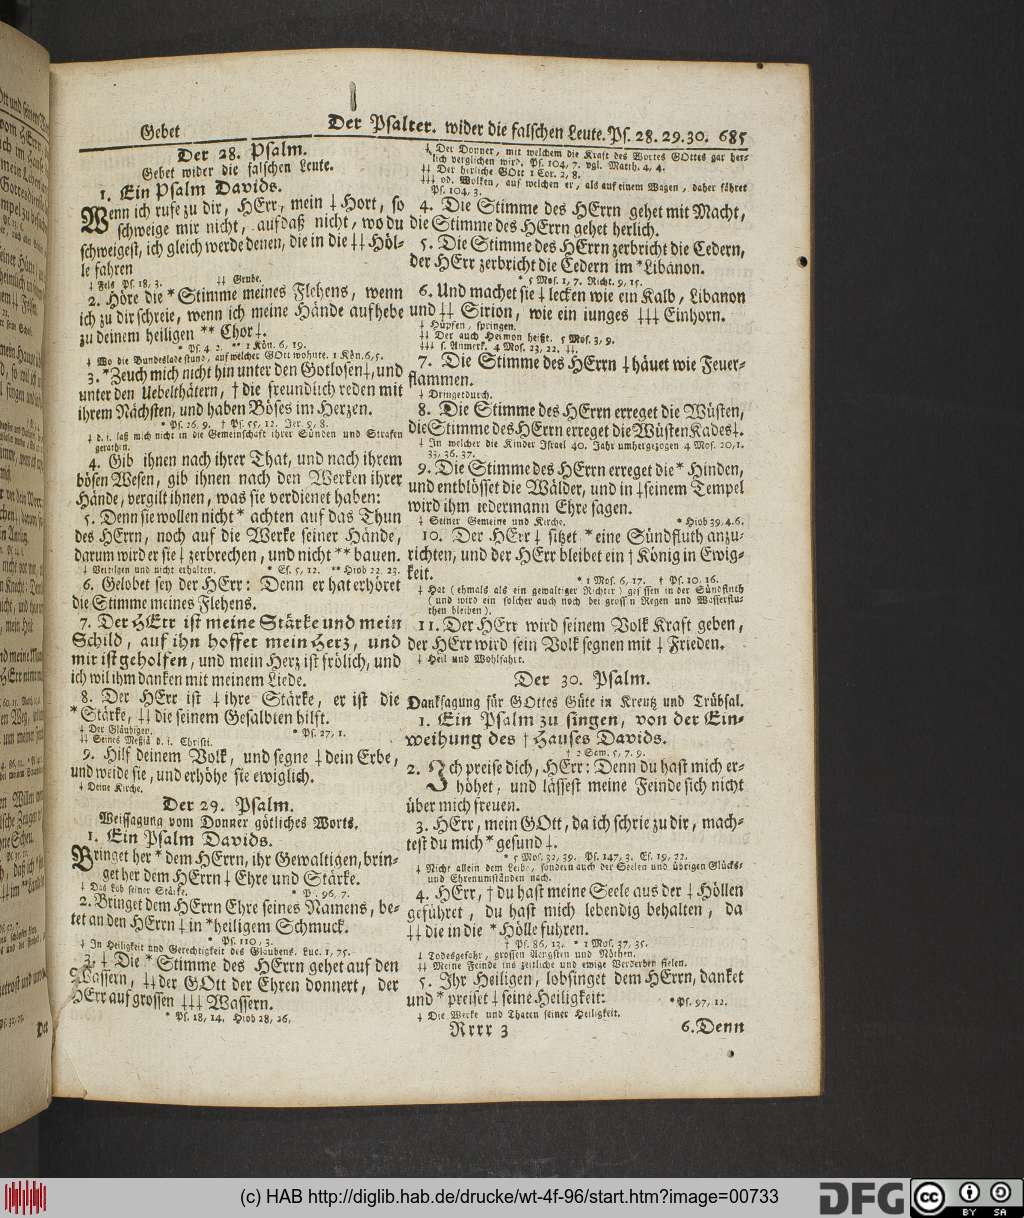 Gebet Der Psalter. wider die falschen Leute. Ps. 28. 29. 30. 685
Der 28. Psalm.
Gebet wider die falschen Leute.
1. Ein Psalm Davids.
Wenn ich rufe zu dir, HErr, mein ‡ Hort, so
schweige mir nicht, aufdaß nicht, wo du
schweigest, ich gleich werde denen, die in die ‡‡ Höl-
le fahren
‡ Fels Ps. 18, 3. ‡‡ Grube.
2. Höre die * Stimme meines Flehens, wenn
ich zu dir schreie, wenn ich meine Hände aufhebe
zu deinem heiligen ** Chor ‡.
* Ps. 4 2. ** 1 Kön. 6, 19.
‡ Wo die Bundeslade stund, auf welcher GOtt wohnte. 1 Kön. 6, 5.
3. * Zeuch mich nicht hin unter den Gotlosen ‡, und
unter den Uebelthätern, † die freundlich reden mit
ihrem Nächsten, und haben Böses im Herzen.
* Ps. 26. 9. † Ps. 55, 12. Jer. 9, 8.
‡ d. i. laß mich nicht in die Gemeinschaft ihrer Sünden und Strafen
gerathen.
4. Gib ihnen nach ihrer That, und nach ihrem
bösen Wesen, gib ihnen nach den Werken ihrer
Hände, vergilt ihnen, was sie verdienet haben:
5. Denn sie wollen nicht * achten auf das Thun
des HErrn, noch auf die Werke seiner Hände,
darum wird er sie ‡ zerbrechen, und nicht ** bauen.
‡ Vertilgen und nicht erhalten. * Es. 5, 12. ** Hiob 22. 23.
6. Gelobet sey der HErr: Denn er hat erhöret
die Stimme meines Flehens.
7. Der HErr ist meine Stärke und mein
Schild, auf ihn hoffet mein Herz, und
mir ist geholfen, und mein Herz ist frölich, und
ich wil ihm danken mit meinem Liede.
8. Der HErr ist ‡ ihre Stärke, er ist die
* Stärke, ‡‡ die seinem Gesalbten hilft.
‡ Der Gläubigen. * Ps. 27, 1.
‡‡ Seines Meßiä d. i. Christi.
9. Hilf deinem Volk, und segne ‡ dein Erbe,
und weide sie, und erhöhe sie ewiglich.
‡ Deine Kirche.
Der 29. Psalm.
Weissagung vom Donner götliches Worts.
1. Ein Psalm Davids.
Bringet her * dem HErrn, ihr Gewaltigen, brin-
get her dem HErrn ‡ Ehre und Stärke.
‡ Das Lob seiner Stärke. * Ps. 96, 7.
2. Bringet dem HErrn Ehre seines Namens, be-
tet an den HErrn ‡ in * heiligem Schmuck.
* Ps. 110, 3.
‡ In Heiligkeit und Gerechtigkeit des Glaubens. Luc. 1, 75.
3. ‡ Die * Stimme des HErrn gehet auf den
Wassern, ‡‡ der GOtt der Ehren donnert, der
HErr auf grossen ‡‡‡ Wassern.
* Ps. 18, 14. Hiob 28, 26.
‡ Der Donner, mit welchem die Kraft des Wortes GOttes gar her-
lich verglichen wird. Ps. 104, 7. vgl. Matth. 4, 4.
‡‡ Der herliche GOtt 1 Cor. 2, 8.
‡‡‡ od. Wolken, auf welchen er, als auf einem Wagen, daher fähret
Ps. 104, 3.
4. Die Stimme des HErrn gehet mit Macht,
die Stimme des HErrn gehet herlich.
5. Die Stimme des HErrn zerbricht die Cedern,
der HErr zerbricht die Cedern im * Libanon.
* 5 Mos. 1, 7. Richt. 9, 15.
6. Und machet sie ‡ lecken wie ein Kalb, Libanon
und ‡‡ Sirion, wie ein iunges ‡‡‡ Einhorn.
‡ Hüpfen, springen.
‡‡ Der auch Hermon heißt. 5 Mos. 3, 9.
‡‡‡ s. Anmerk. 4 Mos. 23, 22. ‡‡.
7. Die Stimme des HErrn ‡ häuet wie Feuer-
flammen.
‡ Dringet durch.
8. Die Stimme des HErrn erreget die Wüsten,
die Stimme des HErrn erreget die Wüsten Kades ‡.
‡ In welcher die Kinder Israel 40. Jahr umhergezogen 4 Mos. 20, 1.
33, 36. 37.
9. Die Stimme des HErrn erreget die * Hinden,
und entblösset die Wälder, und in ‡ seinem Tempel
wird ihm iedermann Ehre sagen.
‡ Seiner Gemeine und Kirche. * Hiob 39, 4. 6.
10. Der HErr ‡ sitzet * eine Sündfluth anzu-
richten, und der HErr bleibet ein † König in Ewig-
keit.
* 1 Mos. 6, 17. † Ps. 10. 16.
‡ Hat (ehmals als ein gewaltiger Richter) gesessen in der Sündfluth
(und wird ein solcher auch noch bei grossen Regen und Wasserflu-
then bleiben).
11. Der HErr wird seinem Volk Kraft geben,
der HErr wird sein Volk segnen mit ‡ Frieden.
‡ Heil und Wohlfahrt.
Der 30. Psalm.
Danksagung für GOttes Güte in Kreutz und Trübsal.
1. Ein Psalm zu singen, von der Ein-
weihung des † Hauses Davids.
† 2 Sam. 5, 7. 9.
2. Ich preise dich, HErr: Denn du hast mich er-
höhet, und lässest meine Feinde sich nicht
über mich freuen.
3. HErr, mein GOtt, da ich schrie zu dir, mach-
test du mich * gesund ‡.
* 5 Mos. 32, 39. Ps. 147, 3. Es. 19, 22.
‡ Nicht allein dem Leibe, sondern auch der Seelen und übrigen Glücks-
und Ehrenumständen nach.
4. HErr, † du hast meine Seele aus der ‡ Höllen
geführet, du hast mich lebendig behalten, da
‡‡ die in die * Hölle fuhren.
† Ps. 86, 13. * 1 Mos. 37, 35.
‡ Todesgefahr, grossen Aengsten und Nöthen.
‡‡ Meine Feinde ins zeitliche und ewige Verderben fielen.
5. Ihr Heiligen, lobsinget dem HErrn, danket
und * preiset ‡ seine Heiligkeit: * Ps. 97, 12.
‡ Die Werke und Thaten seiner Heiligkeit.
Rrrr 3 6. Denn
(c) HAB http://diglib.hab.de/drucke/wt-4f-96/start.htm?image=00733
DFG
cc BY SA